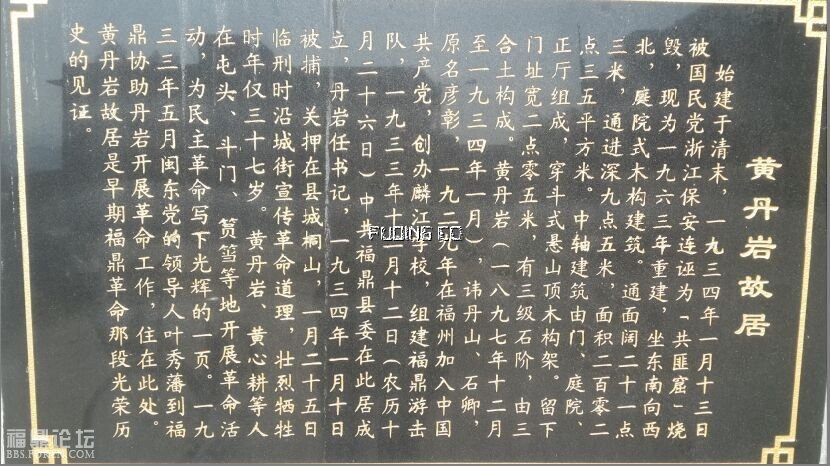 黄丹岩故居
始建于清末，一九三四年一月十三日
被国民党浙江保安连诬为“共匪窟”烧
毁，现为一九六三年重建，坐东南向西
北，庭院式木构建筑。通面阔二十一点
三米，通进深九点五米，面积二百零二
点三五平方米。中轴建筑由门、庭院、
正厅组成，穿斗式悬山顶木构架。留下
门址宽二点零五米，有三级石阶，由三
合土构成。黄丹岩（一八九七年十二月
至一九三四年一月），讳丹山、石卿，
原名彦彰，一九二九年在福州加入中国
共产党，创办麟江学校，组建福鼎游击
队，一九三三年十二月十二日（农历十
月二十六日）中共福鼎县委在此居成
立，丹岩任书记，一九三四年一月十日
被捕，关押在县城桐山，一月二十五日
临刑时沿城街宣传革命道理，壮烈牺牲
时年仅三十七岁。黄丹岩、黄心耕等人
在屯头、斗门、筼筜等地开展革命活
动，为民主革命写下光辉的一页。一九
三三年五月闽东党的领导人叶秀藩到福
鼎协助丹岩开展革命工作，住在此处。
黄丹岩故居是早期福鼎革命那段光荣历
史的见证。
福鼎论坛